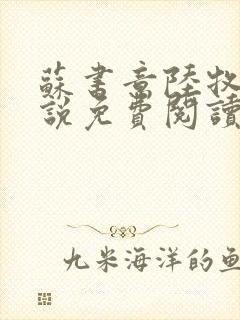 蘇書意陸牧
說免費閱讀
九米海洋的魚